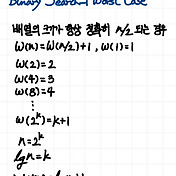 Binary Search-1 Worst Case
배열의 크기가 항상 정확히 n/2 되는 경우
W(n)=W(n/2)+1, W(1)=1
W(2)=2
W(4)=3
W(8)=4
⋮
W(2^k)=k+1
n=2^k
lg n=k